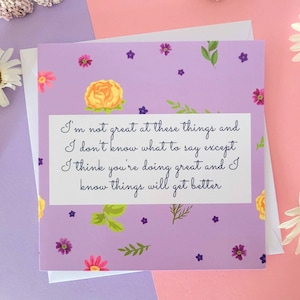 I'm not great at these things and
I don't know what to say except
I think you're doing great and I
know things will get better